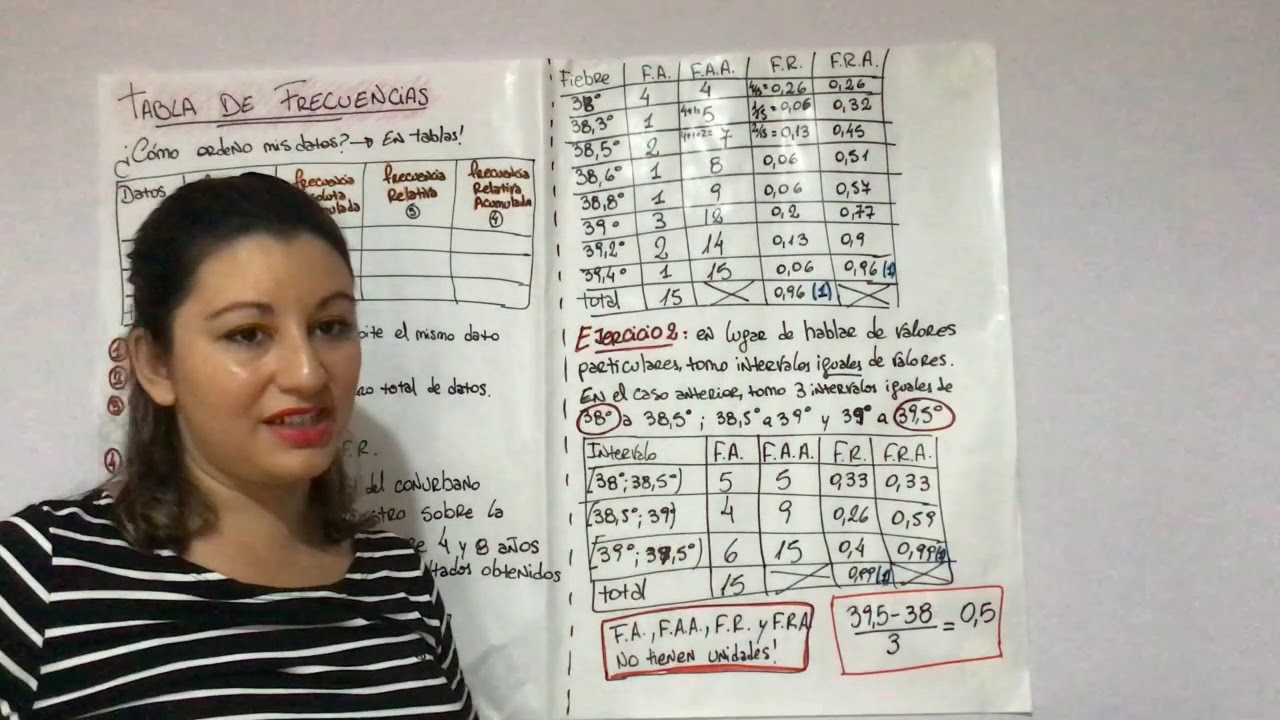 TABLA DE FRECUENCIAS
¿Cómo ordeno mis datos? → En tablas!
Datos
Frecuencia Relativa ③
Frecuencia Relativa Acumulada ④
el mismo dato
total de datos.
F.R.
del conurbano
sobre la
4 y 8 años
obtenidos
① 
②
③
④
Fiebre F.A. F.A.A. F.R. F.R.A.
38° 4 4 4/15=0,26 0,26
38,3° 1 4+1=5 1/15=0,06 0,32
38,5° 2 4+1+2=7 2/15=0,13 0,45
38,6° 1 8 0,06 0,51
38,8° 1 9 0,06 0,57
39° 3 12 0,2 0,77
39,2° 2 14 0,13 0,9
39,4° 1 15 0,06 0,96 (1)
total 15 0,96 (1)
EJERCICIO 2: en lugar de hablar de valores
particulares, tomo intervalos iguales de valores.
En el caso anterior, tomo 3 intervalos iguales de
38° a 38,5° ; 38,5° a 39° y 39° a 39,5°
Intervalo F.A. F.A.A. F.R. F.R.A.
[38°; 38,5°) 5 5 0,33 0,33
[38,5°; 39) 4 9 0,26 0,59
[39°; 39,5°) 6 15 0,4 0,99(1)
total 15 0,99(1)
F.A., F.A.A., F.R. y F.R.A
No tienen unidades!
39,5-38/3 = 0,5